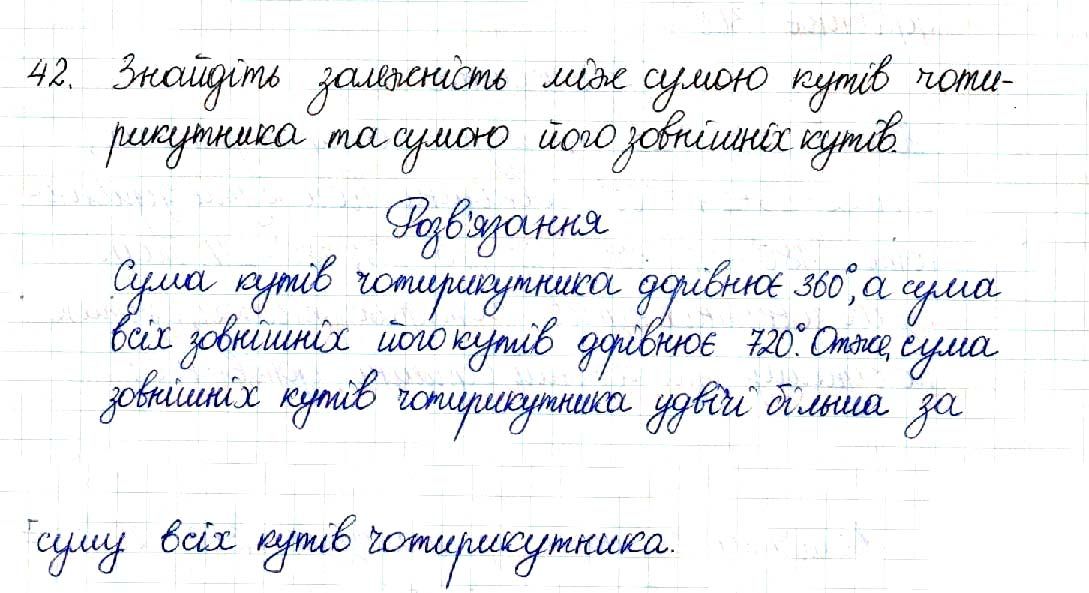 42. Знайдіть залежність між сумою кутів чоти-
рикутника та сумою його зовнішніх кутів.
Розв'язання
Сума кутів чотирикутника дорівнює 360°, а сума
всіх зовнішніх його кутів дорівнює 720°. Отже, сума
зовнішніх кутів чотирикутника удвічі більша за
суму всіх кутів чотирикутника.